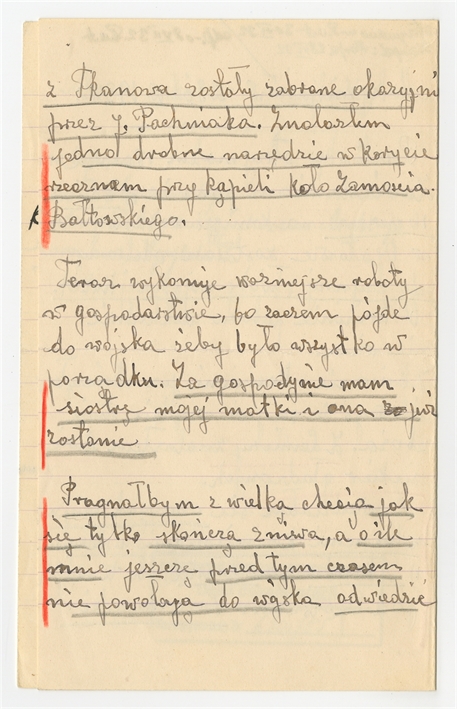 z Tkanowa zostały zabrane okazyjni
przez J. Pachniaka. Znalazłem
jedno drobne narzędzie w korycie
rzecznem przy kąpieli koło Zamościa
Bałtowskiego.
Teraz wykonuje ważniejsze roboty
w gospodarstwie, bo zaczem pójdę
do wojska żeby było wszystko w
porządku. Za gospodynie mam
siostrę mojej matki i ona już
zostanie
Pragnąłbym z wielką chęcią jak
się tylko skończą żniwa, a o ile
mnie jeszcze przed tym czasem
nie powołają do wojska odwiedzić